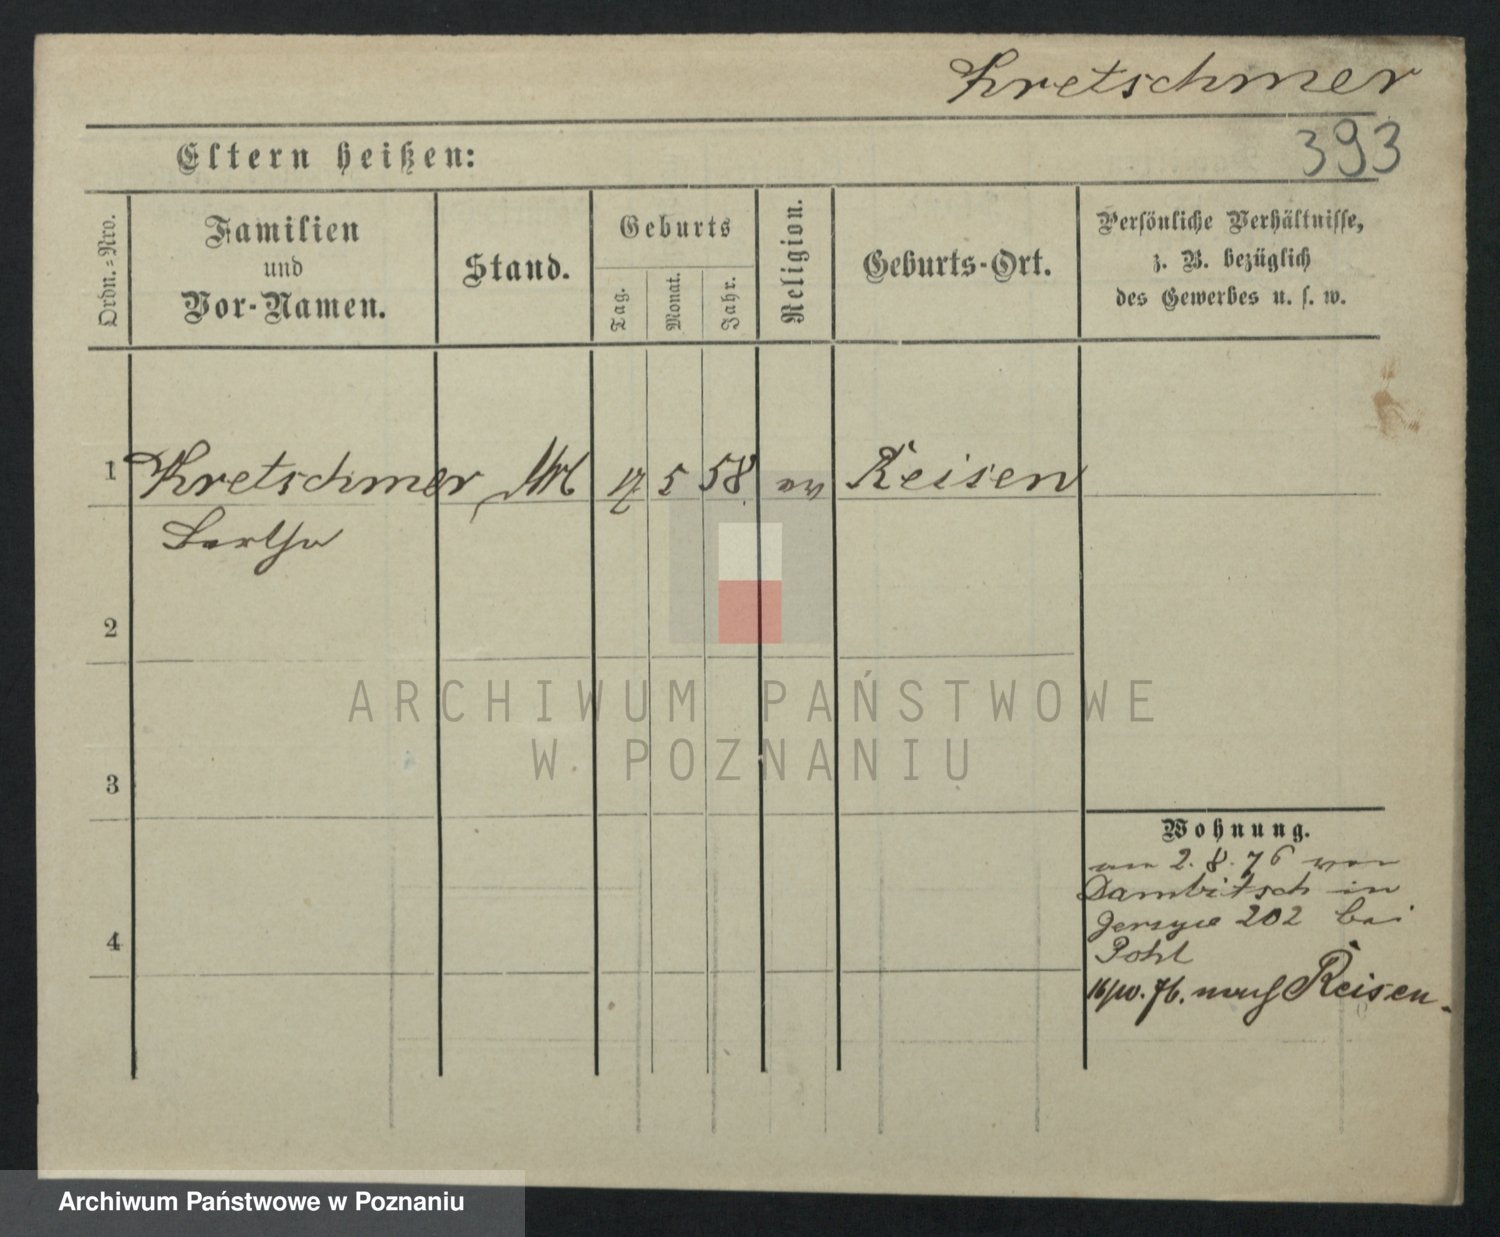 Kretschmer
393
Eltern heißen:
Ordn.-Nro.
Familien
und
Vor-Namen.
Stand.
Geburts
Tag.
Monat.
Jahr.
Religion.
Geburts-Ort.
Persönliche Verhältnisse,
z. B. bezüglich
des Gewerbes u. s. w.
1 Kretschmer 17 5 58 ev Reisen
Bertha
2
3
4
Wohnung.
am 2. 8. 76 von
Dambitsch in
Jersyce 202 bei
Pohl
nach Reisen.
ARCHIWUM PAŃSTWOWE
W POZNANIU
Archiwum Państwowe w Poznaniu